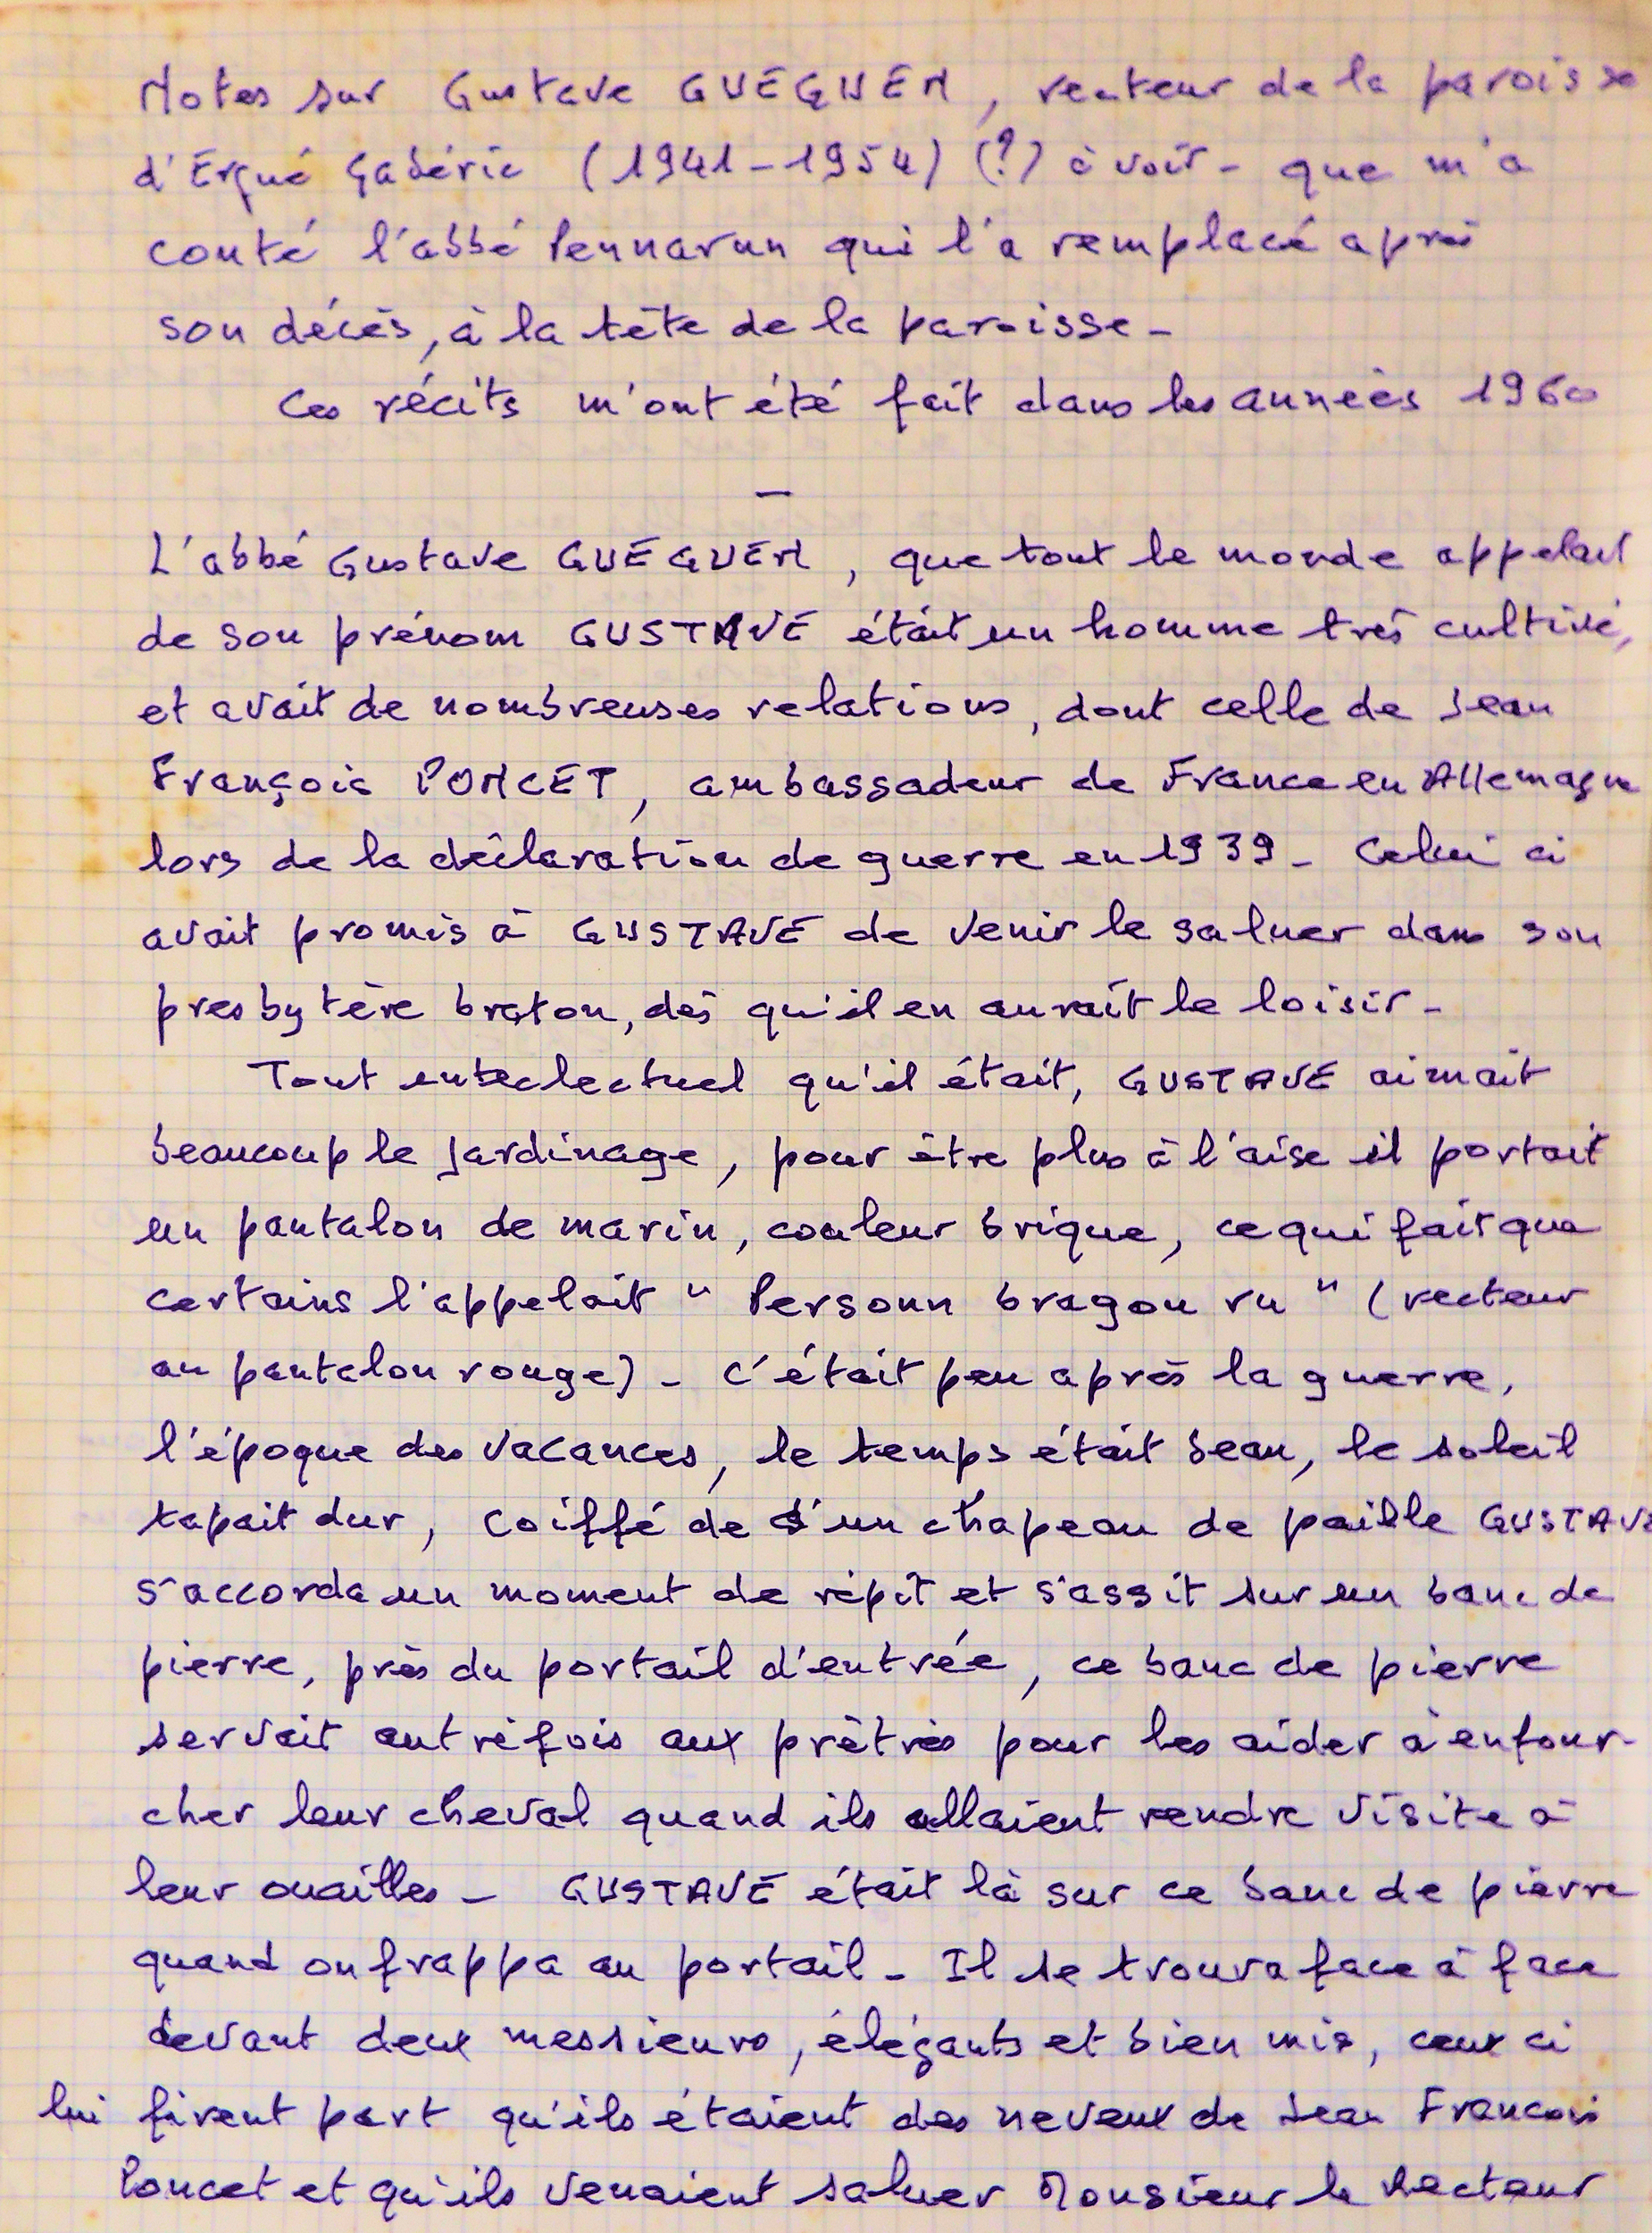 Notes sur Gustave GUÉGUEN, recteur de la paroisse
d'Ergué Gabéric (1941-1954) (?) à voir - que m'a
conté l'abbé Pennarun qui l'a remplacé après
son décès, à la tête de la paroisse -
Ces récits m'ont été fait dans les années 1960
—
L'abbé Gustave GUÉGUEN, que tout le monde appelait
de son prénom GUSTAVE était un homme très cultivé,
et avait de nombreuses relations, dont celle de Jean
François PONCET, ambassadeur de France en Allemagne
lors de la déclaration de guerre en 1939 - Celui ci
avait promis à GUSTAVE de venir le saluer dans son
presbytère breton, dès qu'il en aurait le loisir -
Tout intellectuel qu'il était, GUSTAVE aimait
beaucoup le jardinage, pour être plus à l'aise il portait
un pantalon de marin, couleur brique, ce qui fait que
certains l'appelait " Personn bragou ru " (recteur
au pantalon rouge) - C'était peu après la guerre,
l'époque des vacances, le temps était beau, le soleil
tapait dur, coiffé de d'un chapeau de paille GUSTAVE
s'accorda un moment de répit et s'assit sur un banc de
pierre, près du portail d'entrée, ce banc de pierre
servait autrefois aux prêtres pour les aider à enfour-
cher leur cheval quand ils allaient rendre visite à
leur ouailles - GUSTAVE était là sur ce banc de pierre
quand on frappa au portail - Il se trouva face à face
devant deux messieurs, élégants et bien mis, ceux ci
lui firent part qu'ils étaient des neveux de Jean Francois
Poncet et qu'ils venaient saluer Monsieur le Recteur